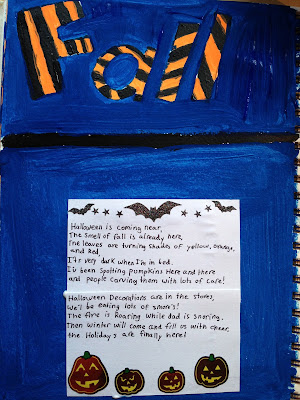 Fall
Halloween is coming near,
The smell of fall is already here,
The leaves are turning shades of yellow, orange,
and Red,
It's very dark when I'm in bed.
I've been spotting pumpkins Here and there
and people carving them with lots of care!
Halloween Decorations are in the stores,
we'll be eating lots of smore's!
The fire is Roaring While dad is snoring,
Then winter will come and fill us with cheer,
the Holiday's are finally here!